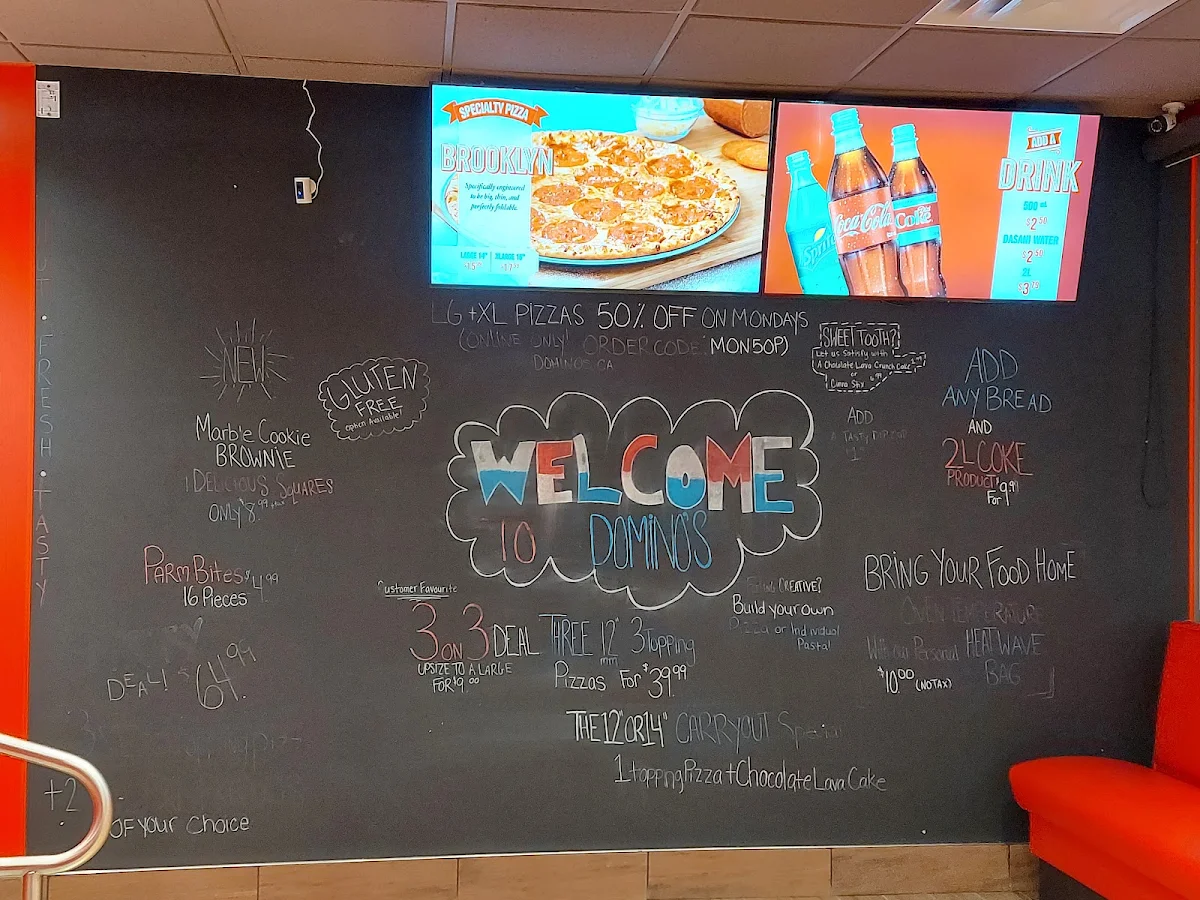 SPECIALTY PIZZA
BROOKLYN
Specifically engineered
to be big, thin, and
perfectly foldable.
LARGE 14" XLARGE 16"
ADD A
DRINK
500 mL
$2.50
DASANI WATER
$2.50
2L
Sprite
Coca-Cola
Coke
LG + XL PIZZAS 50% OFF ON MONDAYS
(ONLINE ONLY ORDER CODE: MON50P)
DOMINOS.CA
NEW
Marble Cookie
BROWNIE
DELICIOUS SQUARES
ONLY 8.99
GLUTEN
FREE
option Available!
SWEET TOOTH?
Let us Satisfy with
A Chocolate Lava Crunch Cake
or
Cinna Stix
ADD
ADD
ANY BREAD
AND
2L COKE
PRODUCT $
For 9.99
WELCOME
TO DOMINO'S
FRESH • TASTY
PARM BITES $4.99
16 Pieces
DEAL! $64.99
+2
OF YOUR CHOICE
Customer Favourite
3 ON 3 DEAL THREE 12" 3 Topping
mm
Pizzas For $39.99
UPSIZE TO A LARGE
FOR $9.00
CREATIVE?
Build your own
Pizza or Individual
Pasta!
BRING YOUR FOOD HOME
OVEN TEMPERATURE
With our Personal HEATWAVE
BAG
$10.00 (NO TAX)
THE 12" OR 14" CARRYOUT Special
1 topping Pizza + Chocolate Lava Cake